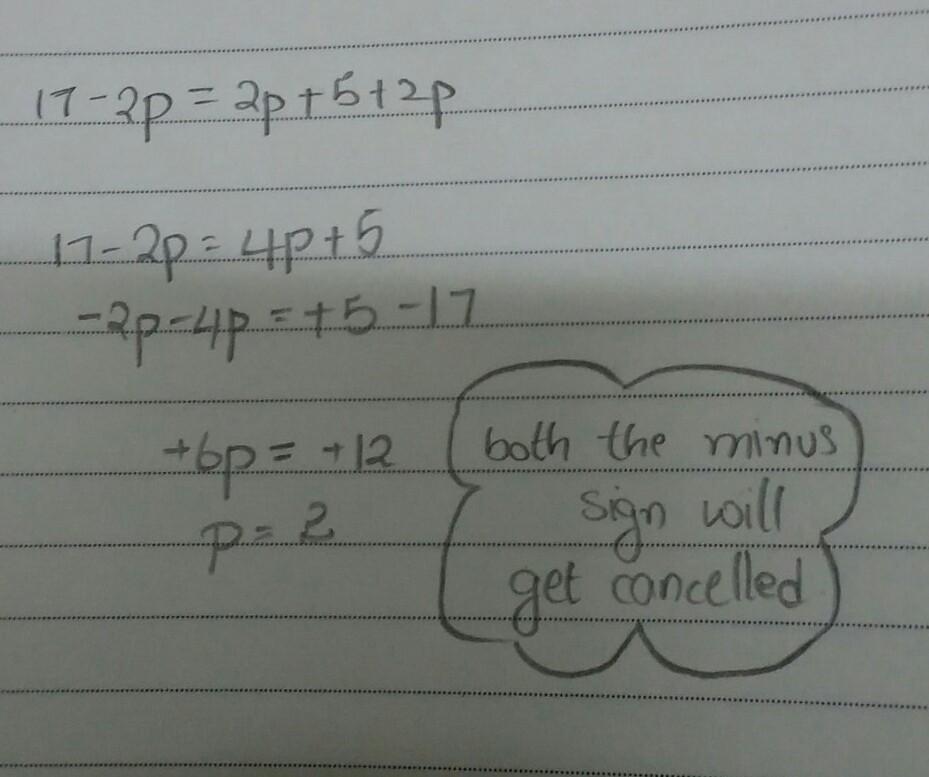 17-2p=2p+5+2p
17-2p=4p+5
-2p-4p=+5-17
+6p=+12
p=2
both the minus
sign will
get cancelled